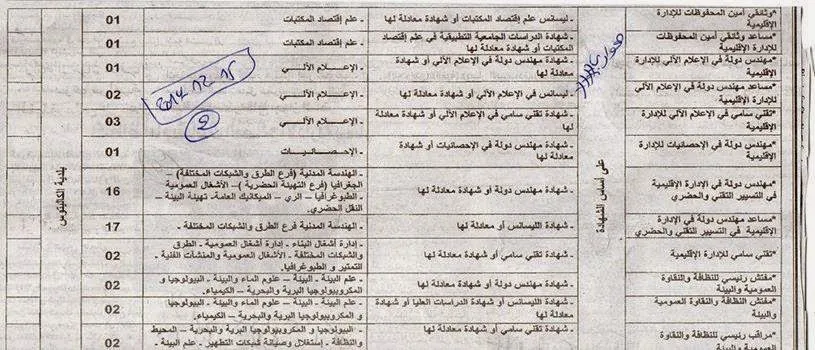 *وثائقي أمين المحفوظات للإدارة
الإقليمية
- ليسانس علم إقتصاد المكتبات أو شهادة معادلة لها
- علم إقتصاد المكتبات
01
*مساعد وثائقي أمين المحفوظات
للإدارة الإقليمية
- شهادة الدراسات الجامعية التطبيقية في علم إقتصاد
المكتبات أو شهادة معادلة لها
- علم إقتصاد المكتبات
01
*مهندس دولة في الإعلام الآلي للإدارة
الإقليمية
- شهادة مهندس دولة في الإعلام الآلي أو شهادة
معادلة لها
- الإعـــلام الآلـــي
01
*مساعد مهندس في الإعلام الآلي
للإدارة الإقليمية
- ليسانس في الإعلام الآلي أو شهادة معادلة لها
- الإعـــلام الآلـــي
02
*تقني سامي في الإعلام الآلي للإدارة
الإقليمية
- شهادة تقني سامي في الإعلام الآلي أو شهادة معادلة
لها
- الإعـــلام الآلـــي
03
*مهندس دولة في الإحصائيات للإدارة
الإقليمية
- شهادة مهندس دولة في الإحصائيات أو شهادة
معادلة لها
- الإحصـــائيـــات
01
*مهندس دولة في الإدارة الإقليمية
في التسيير التقني والحضري
- شهادة مهندس دولة أو شهادة معادلة لها
- الهندسة المدنية (فرع الطرق والشبكات المختلفة) –
الجغرافيا (فرع التهيئة الحضرية) – الأشغال العمومية
- الطبوغرافيا - الري – الميكانيك العامة- تهيئة البيئة –
النقل الحضري.
16
*مساعد مهندس دولة في الإدارة
الإقليمية في التسيير التقني والحضري
- شهادة الليسانس أو معادلة لها
- الهندسة المدنية فرع الطرق والشبكات المختلفة -
17
*تقني سامي للإدارة الإقليمية
- شهادة تقني سامي أو شهادة معادلة لها
- إدارة أشغال البناء - إدارة أشغال العمومية - الطرق
والشبكات المختلفة - الأشغال العمومية والمنشآت الفنية -
التمتير و الطبوغرافيا.
02
*مفتش رئيسي للنظافة والنقاوة
العمومية والبيئة
- شهادة مهندس دولة أو شهادة معادلة لها
- علم البيئة - البيئة – علوم الماء والبيئة - البيولوجيا و
المكروبيولوجيا البرية والبحرية – الكيمياء.
02
*مفتش للنظافة والنقاوة العمومية
والبيئة
- شهادة الليسانس أو شهادة الدراسات العليا أو شهادة
معادلة لها
- علم البيئة - البيئة – علوم الماء والبيئة - البيولوجيا
و المكروبيولوجيا البرية والبحرية – الكيمياء.
02
*مراقب رئيسي للنظافة والنقاوة
العمومية والبيئة
- شهادة تقني سامي أو شهادة معادلة لها
- البيولوجيا و المكروبيولوجيا البرية والبحرية – المحيط
والنظافة - إستغلال وصيانة شبكات التطهير - علم البيئة -
02
على أساس الشهادة
بلدية الكاليتوس
2014 12 15
2